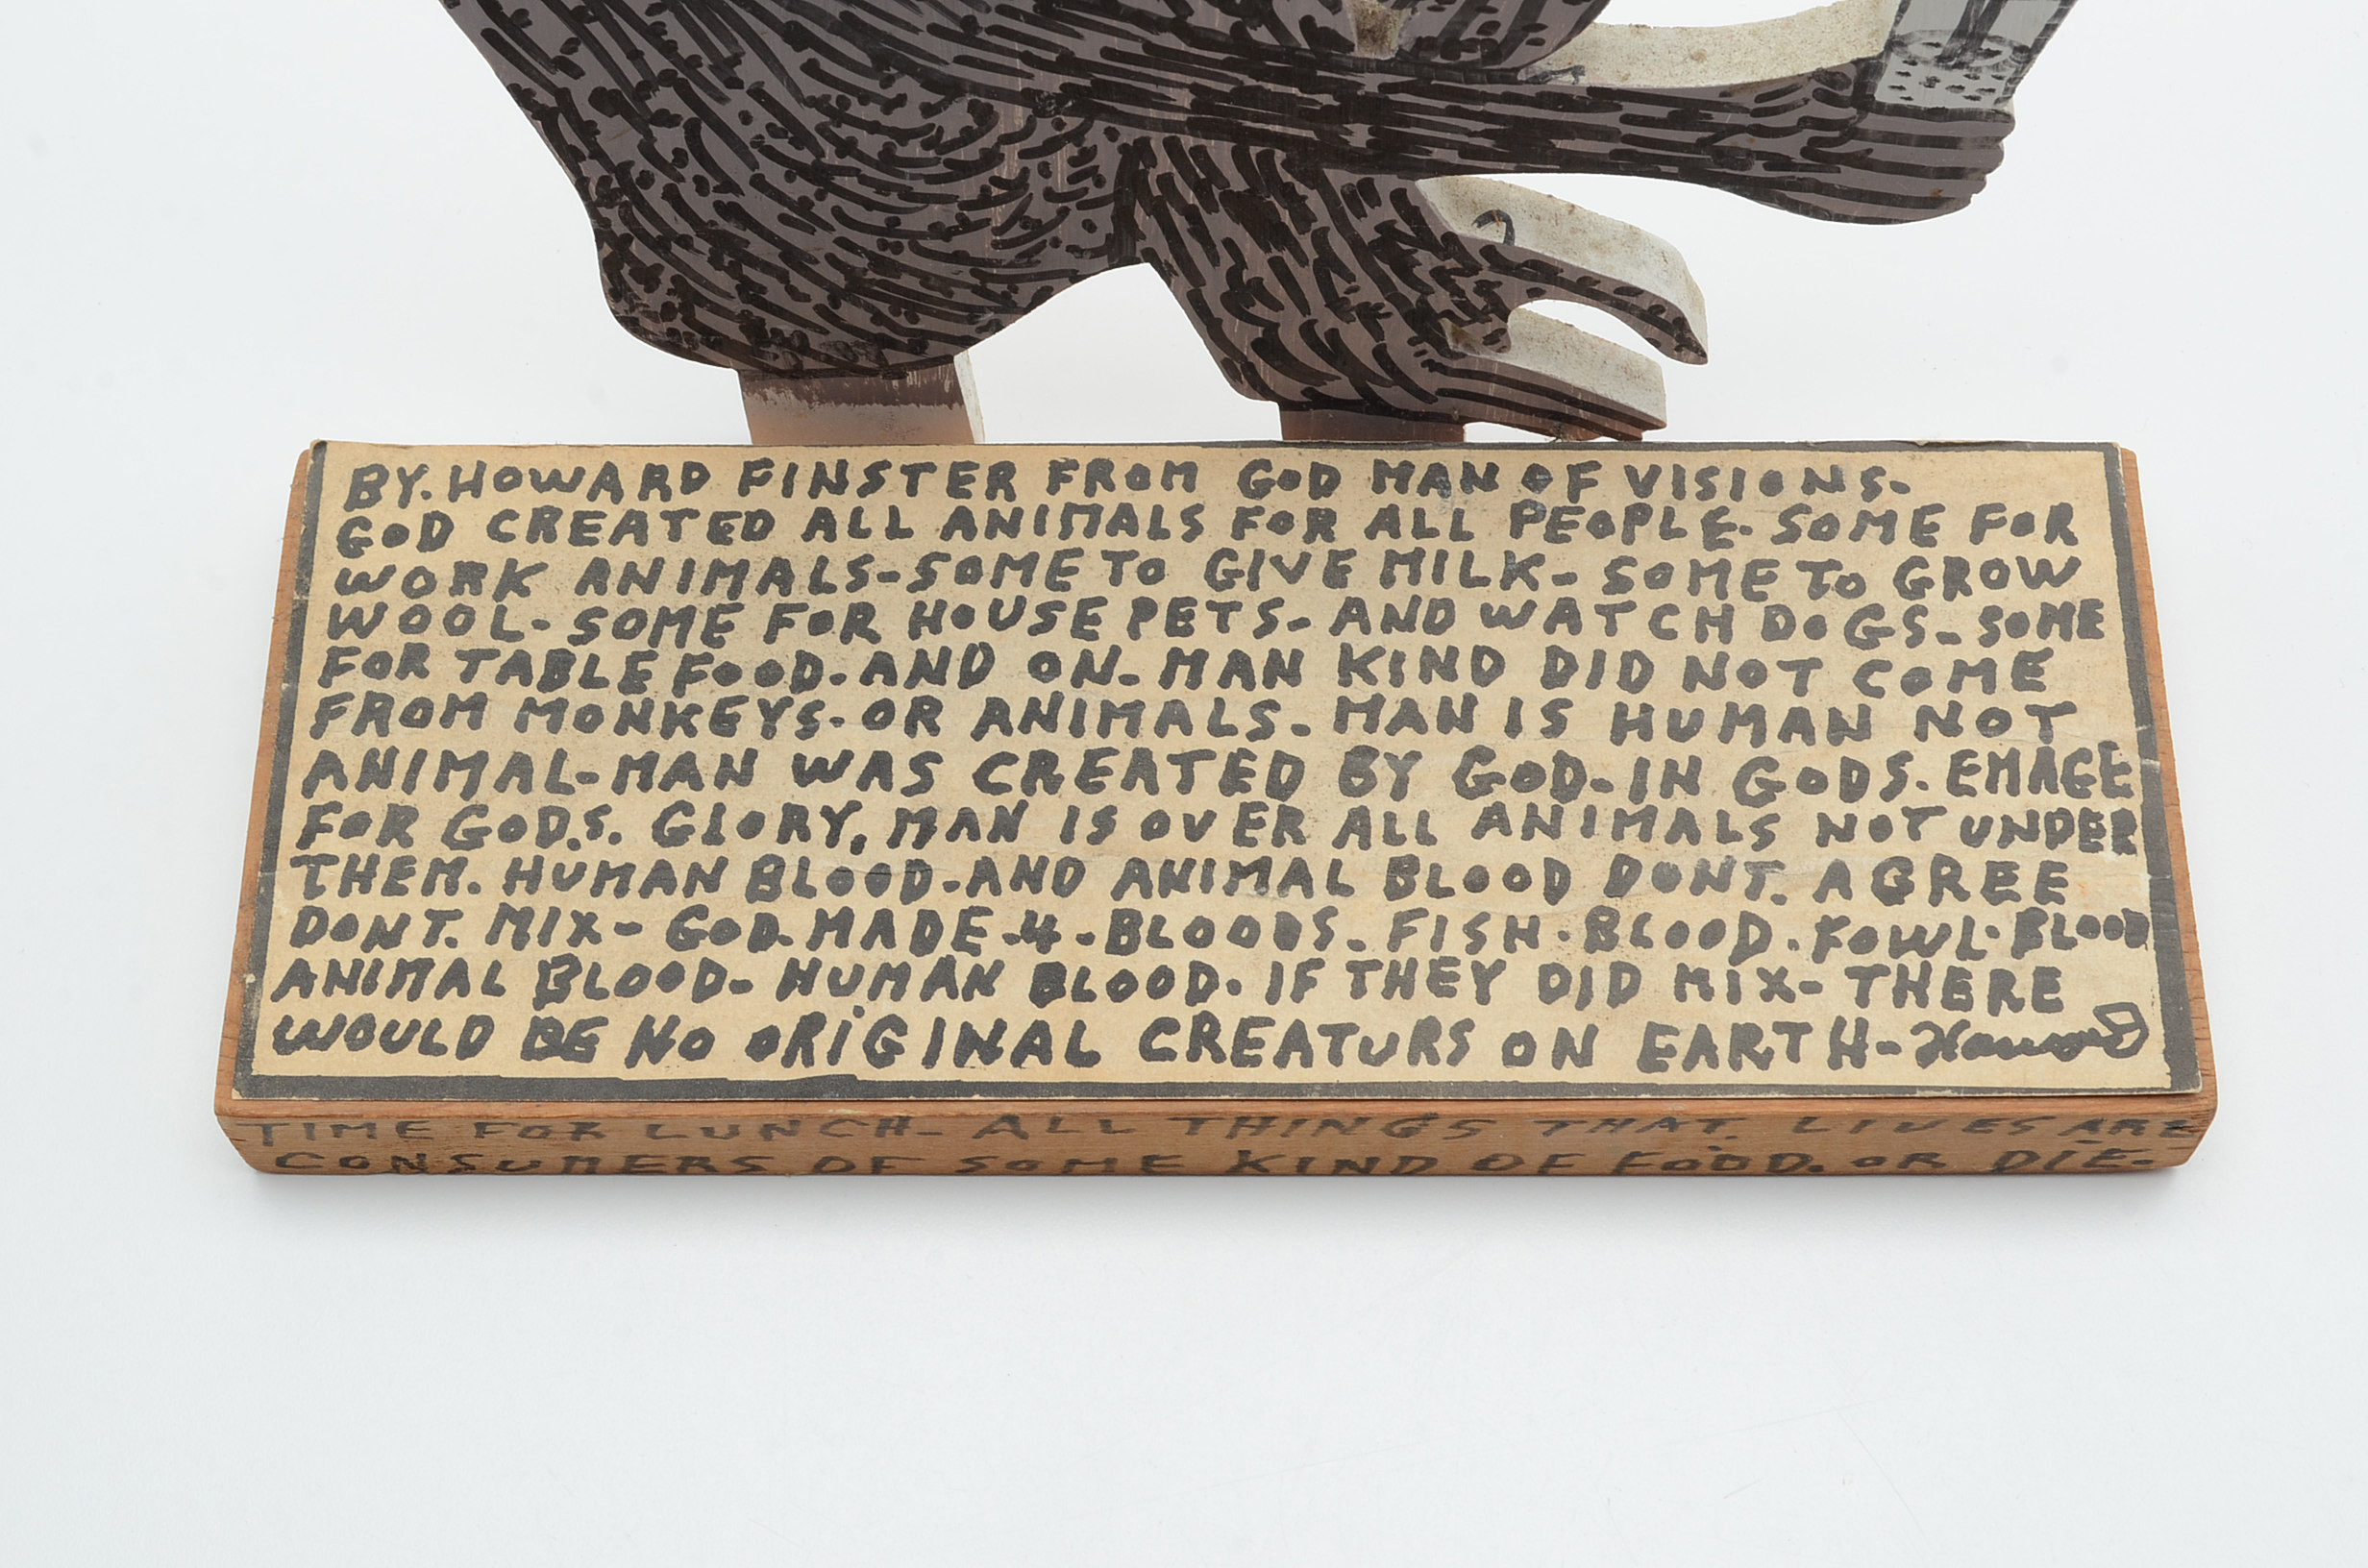 BY. HOWARD FINSTER FROM GOD MAN OF VISIONS-
GOD CREATED ALL ANIMALS FOR ALL PEOPLE. SOME FOR
WORK ANIMALS-SOME TO GIVE MILK- SOME TO GROW
WOOL- SOME FOR HOUSE PETS- AND WATCH DOGS- SOME
FOR TABLE FOOD. AND ON- MAN KIND DID NOT COME
FROM MONKEYS- OR ANIMALS- MAN IS HUMAN NOT
ANIMAL-MAN WAS CREATED BY GOD- IN GODS. EMAGE
FOR GOD.S. GLORY, MAN IS OVER ALL ANIMALS NOT UNDER
THEM. HUMAN BLOOD-AND ANIMAL BLOOD DONT. AGREE
DONT. MIX- GOD.MADE-4-BLOODS- FISH-BLOOD. FOWL-BLOOD
ANIMAL BLOOD- HUMAN BLOOD. IF THEY DID MIX- THERE
WOULD BE NO ORIGINAL CREATURS ON EARTH- Howard
TIME FOR LUNCH- ALL THINGS THAT. LIVES ARE
CONSUMERS OF SOME KIND OF FOOD. OR DIE.